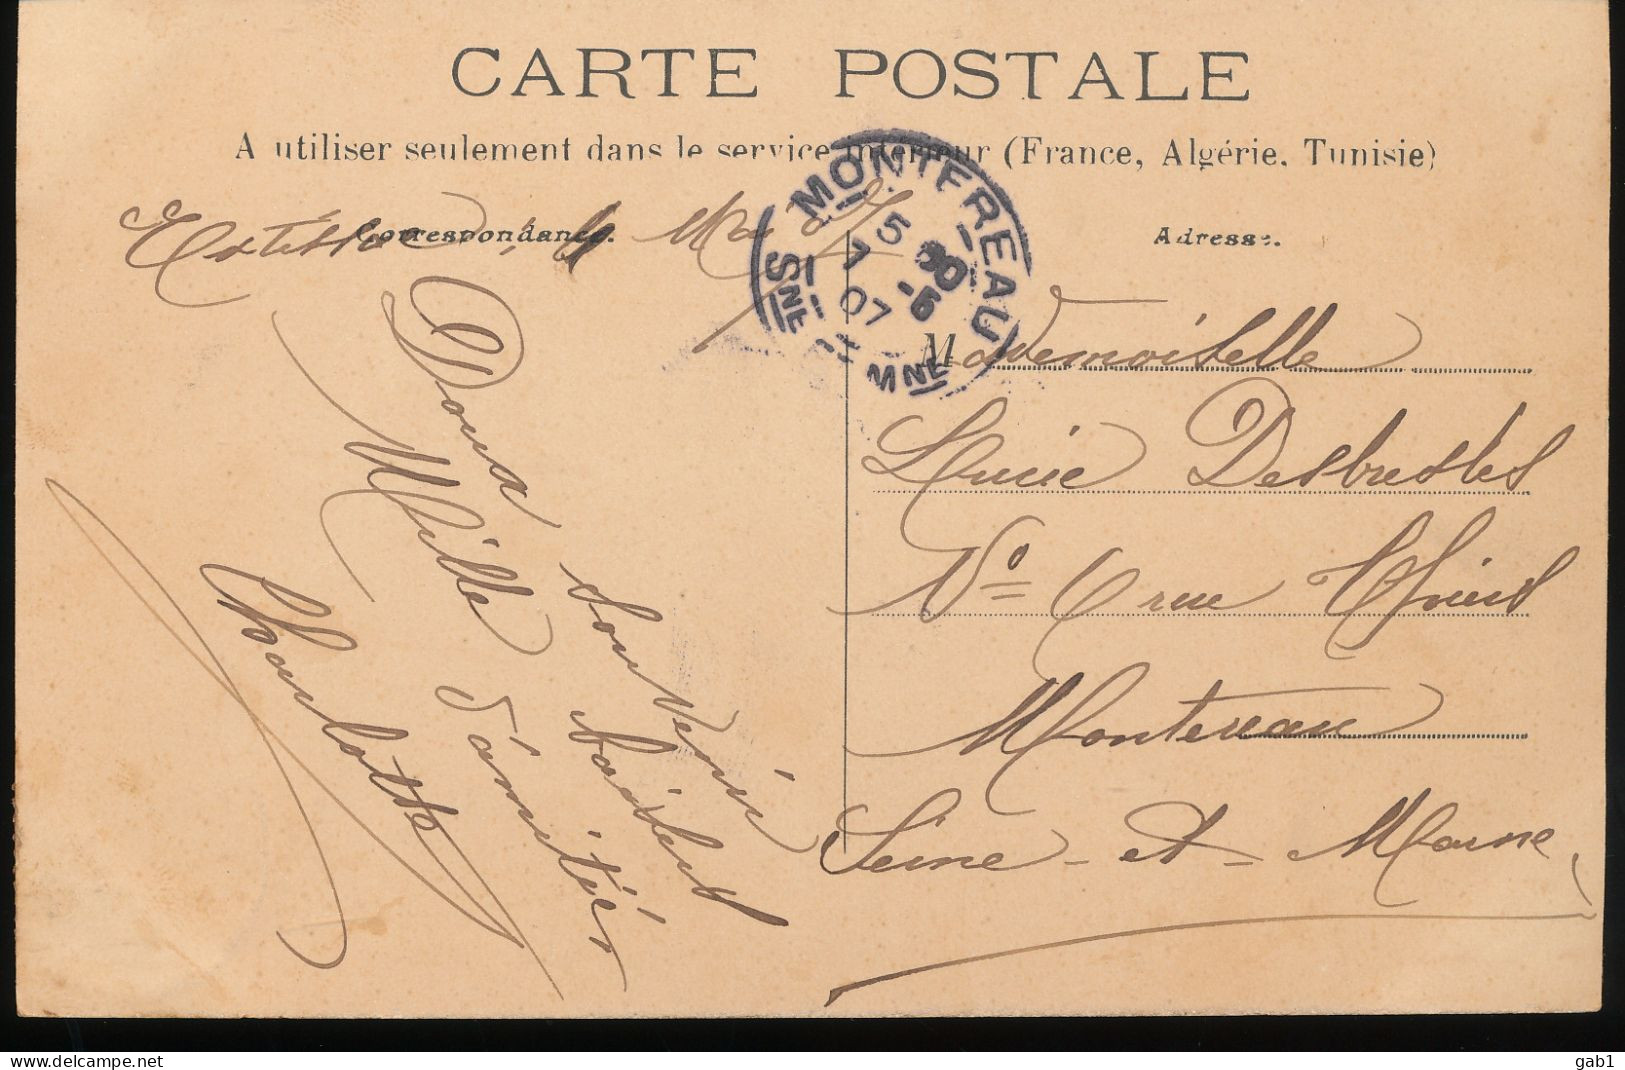 CARTE POSTALE
A utiliser seulement dans le service intérieur (France, Algérie, Tunisie)
Correspondance.
Mai
Adresse.
MONTEREAU
5 30
7 -5
07
SNE ET MNE
Doux souvenir
Mille baisers
d'amitiés
Charlotte
Mademoiselle
Lucie Desbrestes
No 6 rue Thiers
Montereau
Seine-et-Marne
gab1